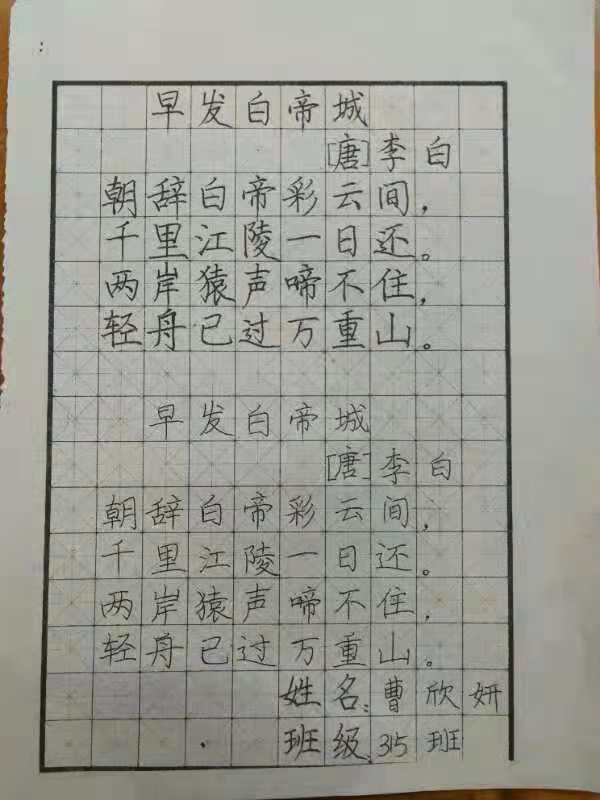 早发白帝城
[唐]李白
朝辞白帝彩云间，
千里江陵一日还。
两岸猿声啼不住，
轻舟已过万重山。
早发白帝城
[唐]李白
朝辞白帝彩云间，
千里江陵一日还。
两岸猿声啼不住，
轻舟已过万重山。
姓名：曹欣妍
班级：315班